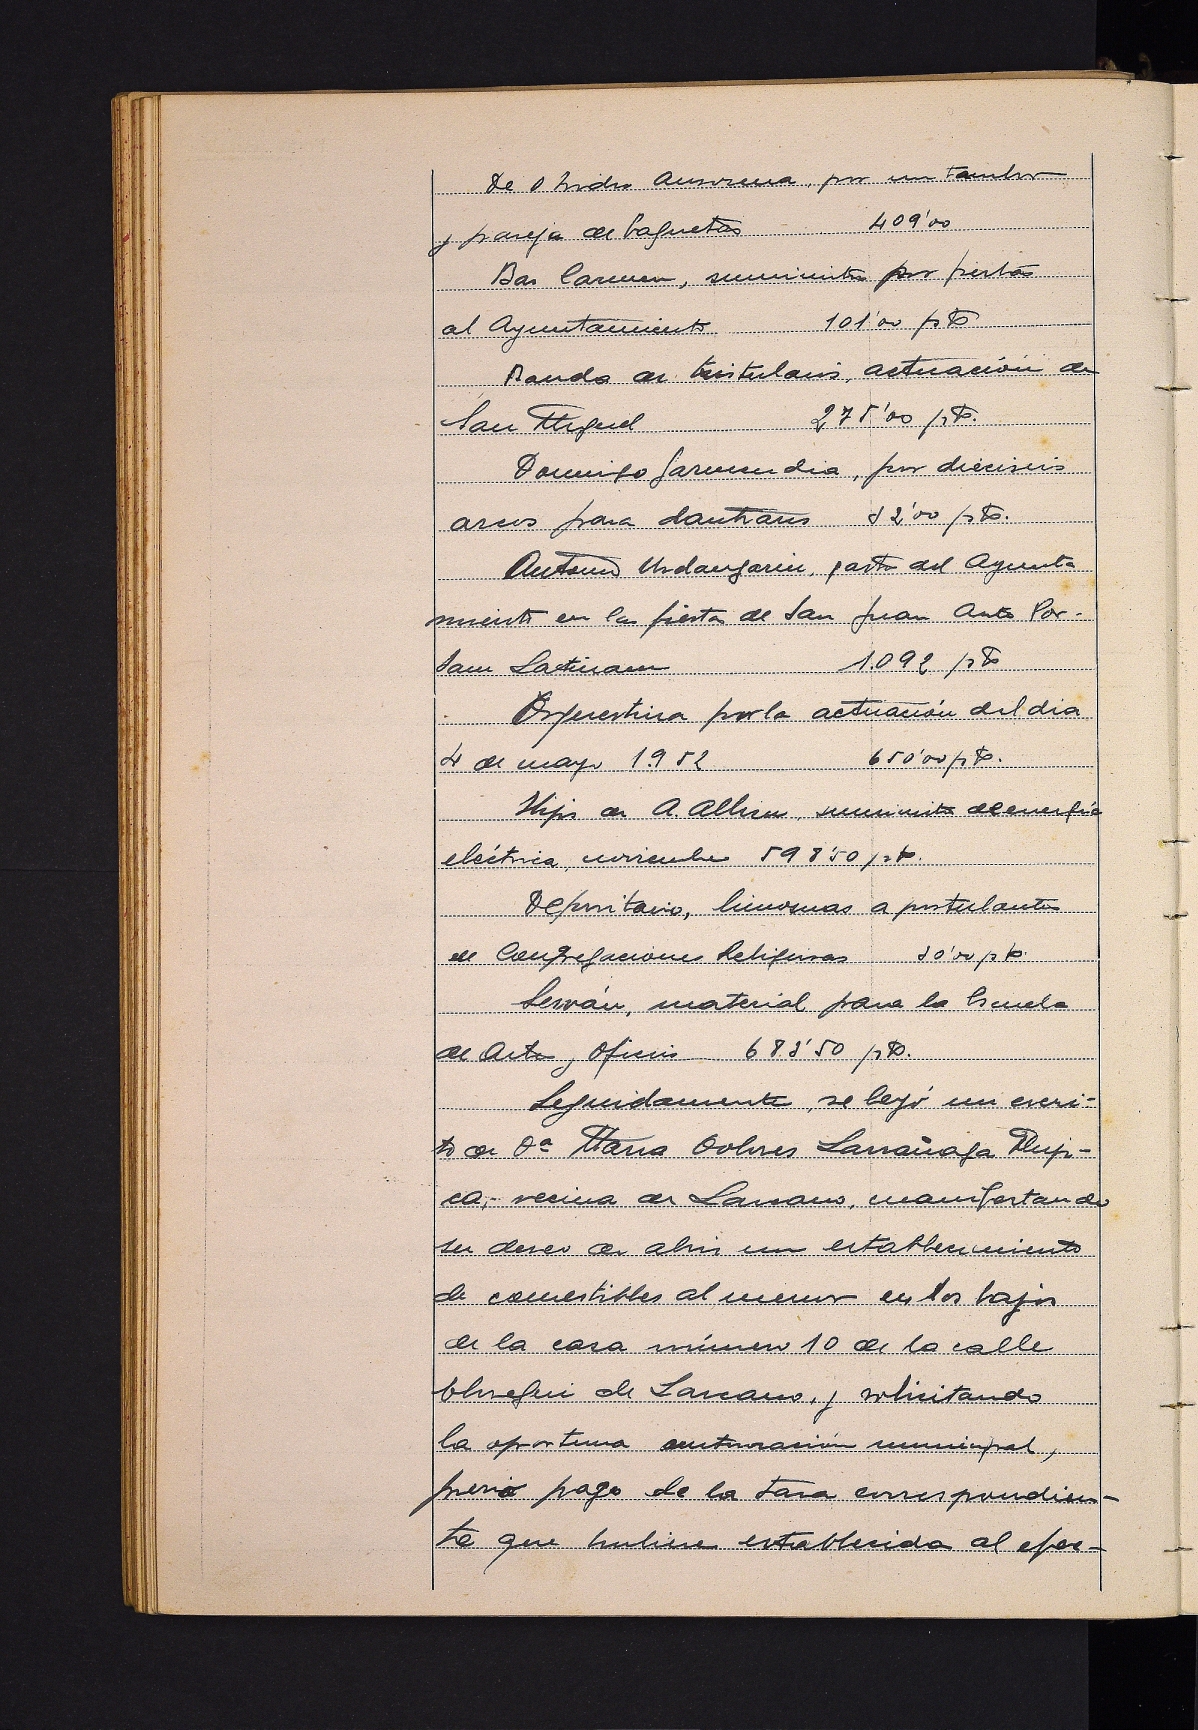 De D. Isidro Ansorena, por un tambor
y pareja de baguetas 409'00
Bar Carmen, suministro por fiestas
al Ayuntamiento 101'00 pts
Banda de txistularis, actuación de
San Miguel 275'00 pts.
Domingo Garmendia, por dieciseis
arcos para dantzaris 52'00 pts.
Antonio Urdangarin, gasto del Ayunta
miento en las fiestas de San Juan Ante Por-
tam Latinam 1.092 pts
Orquestina por la actuación del dia
4 de mayo 1.952 650'00 pts.
Hijos de A. Albisu, suministro de energía
eléctrica, noviembre 598'50 pts.
Depositario, limosnas a postulantes
de Congregaciones Religiosas 50'00 pts.
Serván, material para la Escuela
de Artes y Oficios 685'50 pts.
Seguidamente, se leyó un escri-
to de Dª Maria Dolores Larrañaga
ca, vecina de Lazcano, manifestando
su deseo de abrir un establecimiento
de comestibles al menor en los bajos
de la casa número 10 de la calle
de Lazcano, y solicitando
la oportuna autorización municipal,
previo pago de la tasa correspondien-
te que hubiera establecida al efec-